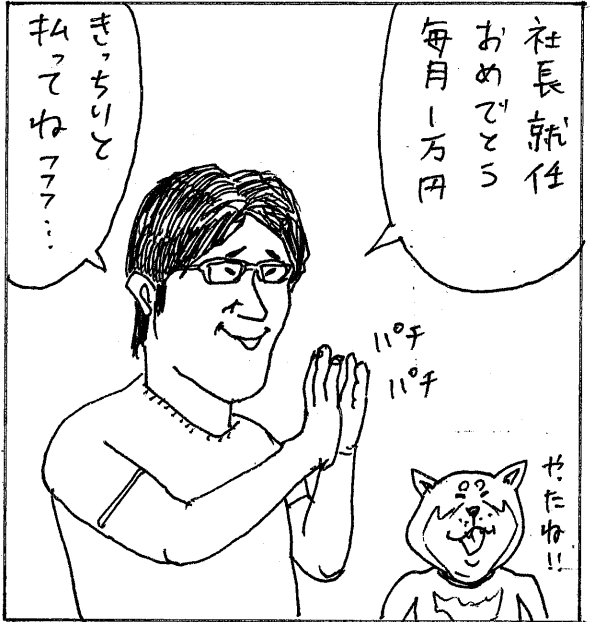 社長就任
おめでとう
毎月1万円
きっちりと
払ってねフフフ…
パチ
パチ
やったね!!